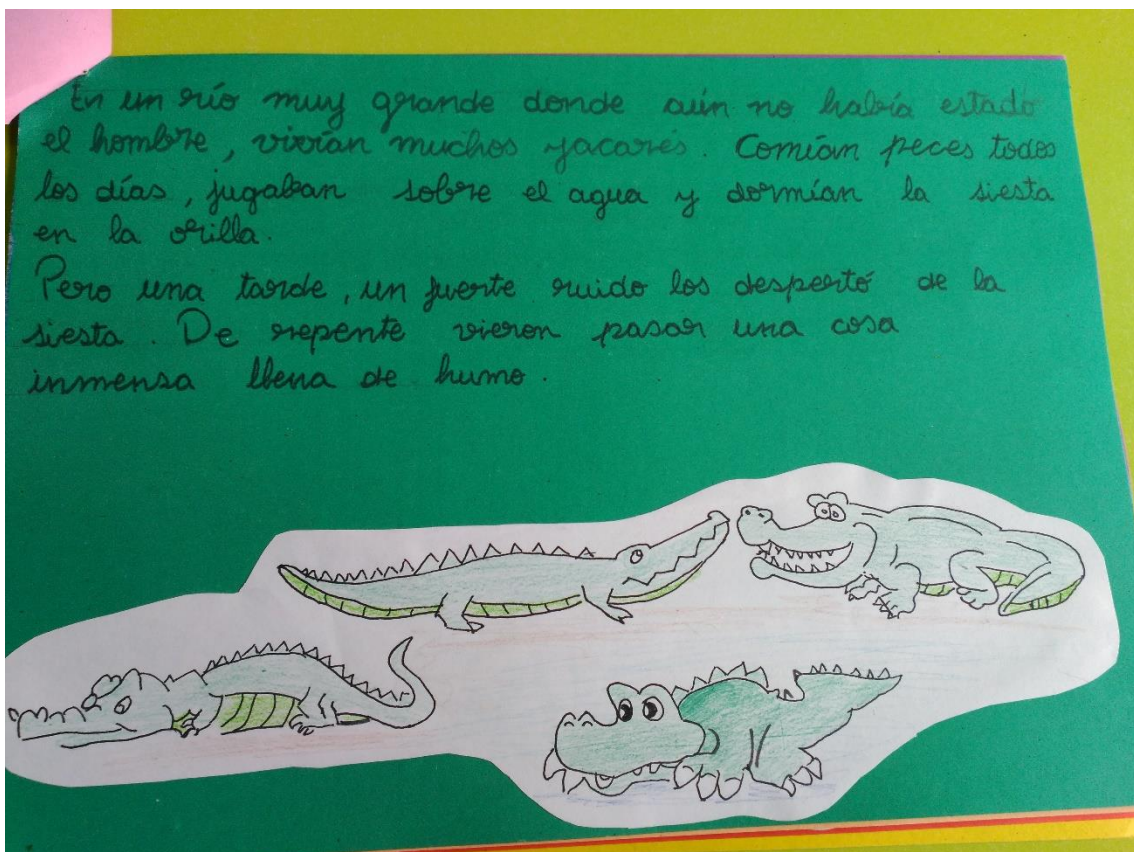 En un río muy grande donde aún no había estado
el hombre, vivían muchos yacarés. Comían peces todos
los días, jugaban sobre el agua y dormían la siesta
en la orilla.
Pero una tarde, un fuerte ruido los despertó de la
siesta. De repente vieron pasar una cosa
inmensa llena de humo.